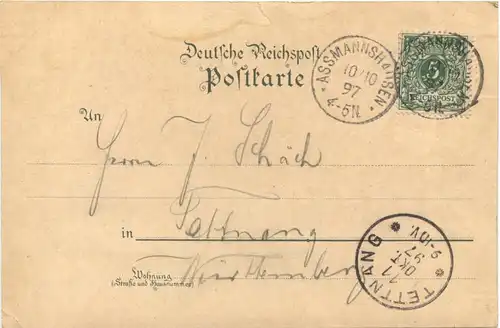 Deutsche Reichspost
Postkarte
ASSMANNSHAUSEN
10/10
97
4-5N.
5
REICHSPOST
An
Herrn J. Schäch
in Tettnang
Württemberg
Wohnung
(Straße und Hausnummer)
TETTNANG
11
OKT.
97
9-10V.